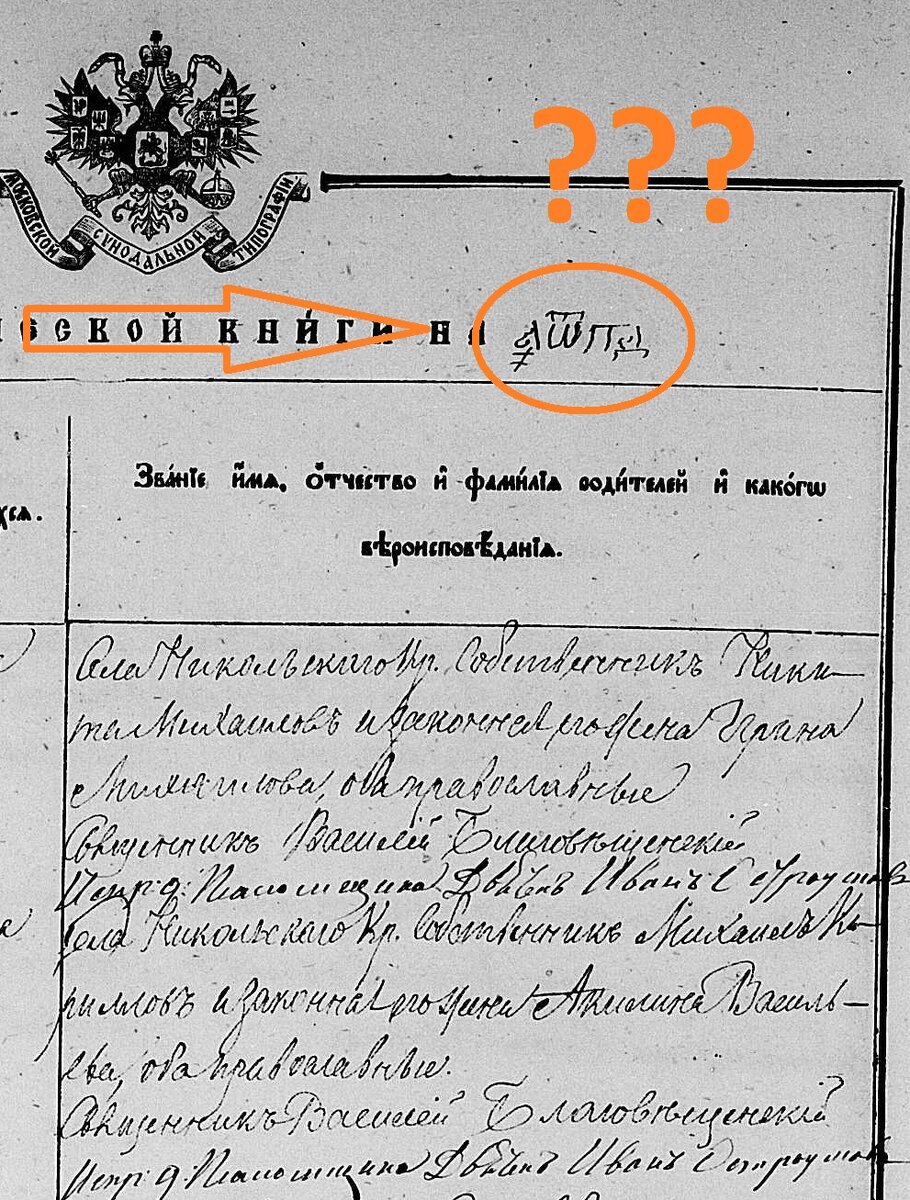 МОСКОВСКОЙ СѴНОДАЛЬНОЙ ТИПОГРАФІИ
???
ской кни́ги на ҂аѿпд
Зва́нїе и҆́мѧ, ѻ҆́тчество и҆ фами́лїѧ роди́телей и҆ како́гѡ
хсѧ.
вѣроисповѣ́данїѧ.
Села Никольскаго Кр. Собственникъ Ники-
та Михайловъ и законная его жена Ирина
Михайлова, оба православные
Священникъ Василій Благовѣщенскій
Испр. д. Псаломщика Дьячекъ Иванъ Остроумовъ
Села Никольскаго Кр. Собственникъ Михаилъ Ки-
рилловъ и законная его жена Акилина Василь-
ева, оба православные.
Священникъ Василей Благовѣщенскій
Испр. д. Псаломщика Дьячекъ Иванъ Остроумовъ